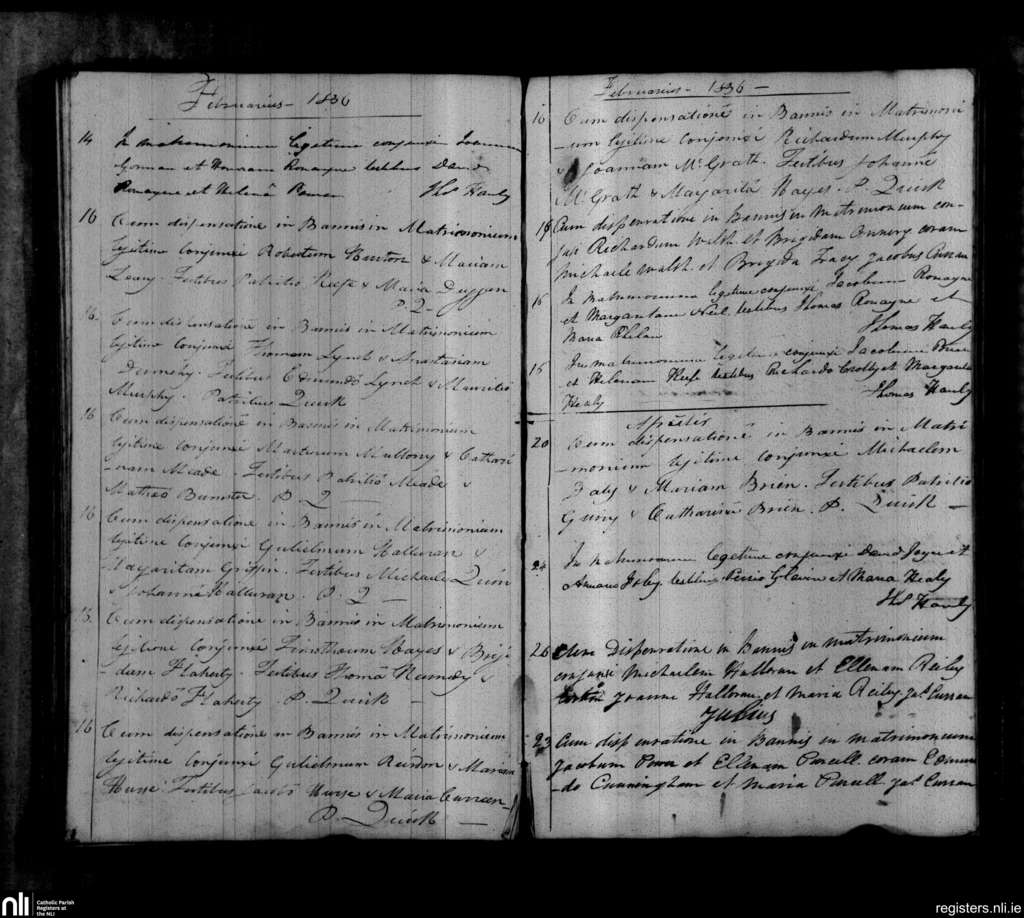 Februarius - 1836
14 In matrimonium legitime conjunxi Joannem
Gorman et Honoram Ronayne testibus David
Ronayne et Helenâ Power Thos Hanly
16 Cum dispensatione in Bannis in Matrimonium
legitime Conjunxi Robertum Hunton & Mariam
Leary. Testibus Patritio Keefe & Maria Duggan
P. Q -
16 Cum dispensatione in Bannis in Matrimonium
legitime Conjunxi Thomam Lynch & Anastasiam
Testibus Edmundo Lynch & Mauritio
Murphy. Patritius Quirk
16 Cum dispensatione in Bannis in Matrimonium
legitime Conjunxi Martinum Mullony & Cathari
-nam Meade. Testibus Patritio Meade &
Matheo P. Q -
16 Cum dispensatione in Bannis in Matrimonium
legitime Conjunxi Gulielmum Halluran &
Margaritam Griffin. Testibus Michaele Quin
& Johanna Halluran. P. Q -
Cum dispensatione in Bannis in Matrimonium
legitime Conjunxi Timotheum Hayes & Brigi
dam Flaherty. Testibus Thoma Kennedy &
Richardo Flaherty. P. Quirk -
16 Cum dispensatione in Bannis in Matrimonium
legitime Conjunxi Gulielmum Reirdon & Mariam
Hurse. Testibus Jacobo Hurse & Maria Curreen -
P. Quirk -
Februarius - 1836 -
16 Cum dispensatione in Bannis in Matrimoni
-um legitime Conjunxi Richardum Murphy
& Joannam McGrath. Testibus Johanne
McGrath & Margarita Hayes. P. Quirk
Cum dispensatione in Bannis in matrimonium con-
Richardum Walsh et Brigidam Connery coram
Michaele Walsh et Brigida Tracy Jacobus Curran
16 In matrimonium legitime conjunxi Jacobum Ronayne
et Margaritam Neil testibus Thomas Ronayne et
Maria Phelan Thomas Hanly
16 In matrimonium legitime conjunxi Jacobum Power
et Helenam Keefe testibus Richardo Crotty et Margarita
Healy Thomas Hanly
Aprilis
20 Cum dispensatione in Bannis in Matri
-monium legitime conjunxi Michaelem
Daly & Mariam Brien. Testibus Patritio
Guiry & Catharina Brien. P. Quirk -
24 In matrimonium legitime conjunxi David Joyce et
testibus Glavin et Maria Healy
Ths Hanly
26 Cum Dispensatione in Bannis in matrimonium
conjunxi Michaelem Halloran et Ellenam Reiley
coram Joanne Halloran et Maria Reiley. Jas Curran
Julius
23 Cum dispensatione in Bannis in matrimonium
Jacobum Power et Ellenam Purcell coram Edmun
-do Cunningham et Maria Purcell Jas Curran
nli
Catholic Parish
Registers at
the NLI
registers.nli.ie